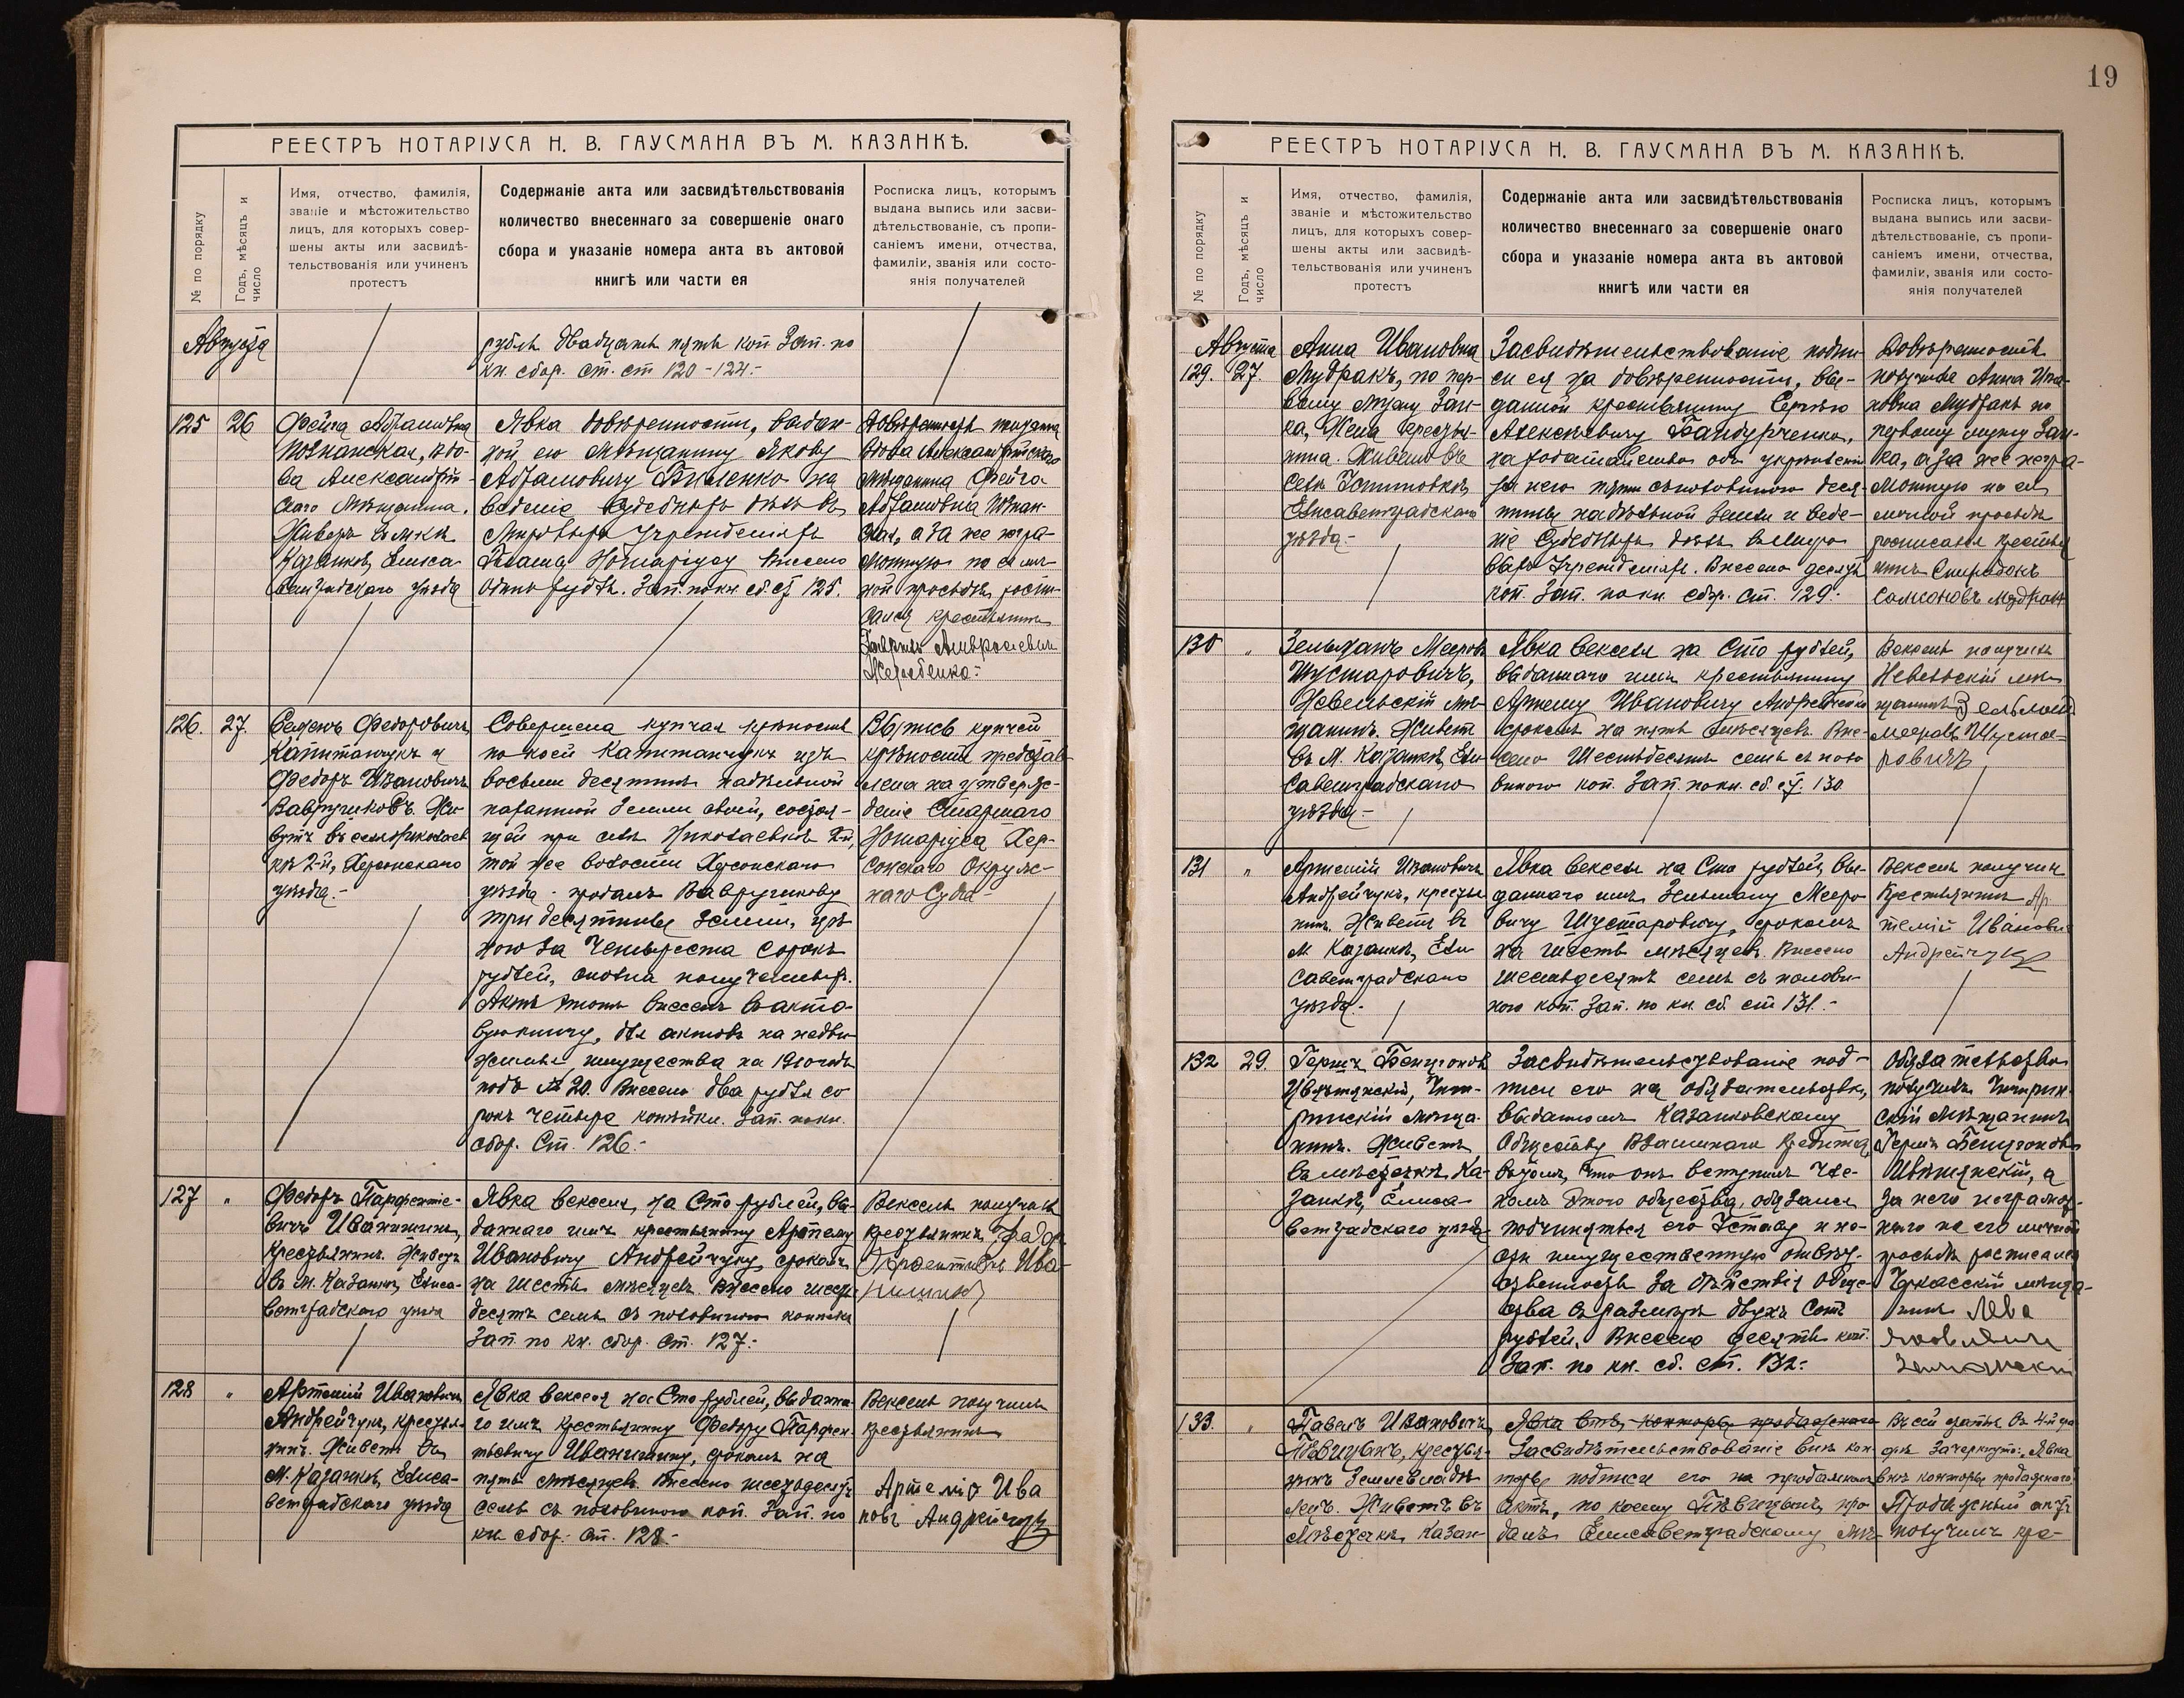 РЕЕСТРЪ НОТАРІУСА Н. В. ГАУСМАНА ВЪ М. КАЗАНКѢ.
№ по порядку
Годъ, мѣсяцъ и
число
Имя, отчество, фамилія,
званіе и мѣстожительство
лицъ, для которыхъ совер-
шены акты или засвидѣ-
тельствованія или учиненъ
протестъ
Содержаніе акта или засвидѣтельствованія
количество внесеннаго за совершеніе онаго
сбора и указаніе номера акта въ актовой
книгѣ или части ея
Росписка лицъ, которымъ
выдана выпись или засви-
дѣтельствованіе, съ пропи-
саніемъ имени, отчества,
фамиліи, званія или состо-
янія получателей
Августа
рубль двадцать пять коп Зап. по
кн. сбор. ст. ст 120-124.-
125
26
Фейга Абрамовна
вдо-
ва Александрій-
скаго мѣщанина.
Живетъ въ м-кѣ
Казанкѣ, Елиса-
ветградскаго уѣзда
Явка довѣренности, выдан-
ной ею мѣщанину Якову
Абрамовичу на
веденіе судебныхъ дѣлъ въ
Мировыхъ Учрежденіяхъ
Нотаріусу внесено
одинъ рубль. Зап. по кн. сб. ст 125.
Довѣренность получила
вдова Александрійскаго
мѣщанина Фейга
Абрамовна
а за нее негра-
мотную по ея лич-
ной просьбѣ роспи-
сался крестьянинъ
Гавріилъ Амвросіевичъ
Жеребенко.-
126.
27.
Семенъ Федоровичъ
Капитанчукъ и
Федоръ Ивановичъ
Вавручиковъ. Жи-
вутъ въ селѣ Николаев-
кѣ 2-й, Херсонскаго
уѣзда.-
Совершена купчая крѣпость
по коей Капитанчукъ изъ
восьми десятинъ надѣльной
пахатной земли своей, состоя-
щей при селѣ Николаевкѣ 2-й,
той же волости Херсонскаго
уѣзда - продалъ Вавручикову
три десятины земли, цѣ-
ною за четыреста сорокъ
рублей, сполна полученныхъ.
Актъ этотъ внесенъ въ акто-
вую книгу, для актовъ на недви-
жимыя имущества на 1910 годъ
подъ № 20. Внесено два рубля со
рокъ четыре копѣйки. Зап. по кн.
сбор. Ст. 126.-
Выпись купчей
крѣпости представ-
лена на утвержде-
деніе Старшаго
Нотаріуса Хер-
сонскаго Окруж-
наго Суда-
127
"
Федоръ Парфентіе-
вичъ Иванишинъ,
крестьянинъ. Живетъ
въ м. Казанкѣ, Елиса-
ветградскаго уѣзда
Явка векселя, на Сто рублей, вы-
даннаго имъ крестьянину Артему
Ивановичу Андрейчуку, срокомъ
на шесть мѣсяцевъ. Внесено шесть-
десятъ семь съ половиною копѣекъ
Зап. по кн. сбор. ст. 127.-
Вексель получилъ
крестьянинъ Федоръ
Парфентіевъ Ива-
нишинъ
128
"
Артемій Ивановичъ
Андрейчукъ, крестья-
нинъ. Живетъ въ
М. Казанкѣ, Елиса-
ветградскаго уѣзда
Явка векселя на Сто рублей, выданна-
го имъ крестьянину Федору Парфен-
тьевичу Иванишину, срокомъ на
пять мѣсяцевъ. Внесено шестьдесятъ
семь съ половиною коп. Зап. по
кн. сбор. ст. 128.-
Вексель получилъ
крестьянинъ
Артеміѵ Ива
новъ Андрейчукъ
19
РЕЕСТРЪ НОТАРІУСА Н. В. ГАУСМАНА ВЪ М. КАЗАНКѢ.
№ по порядку
Годъ, мѣсяцъ и
число
Имя, отчество, фамилія,
званіе и мѣстожительство
лицъ, для которыхъ совер-
шены акты или засвидѣ-
тельствованія или учиненъ
протестъ
Содержаніе акта или засвидѣтельствованія
количество внесеннаго за совершеніе онаго
сбора и указаніе номера акта въ актовой
книгѣ или части ея
Росписка лицъ, которымъ
выдана выпись или засви-
дѣтельствованіе, съ пропи-
саніемъ имени, отчества,
фамиліи, званія или состо-
янія получателей
Августа
129.
27.
Анна Ивановна
Мудракъ, по пер-
вому мужу Зан-
ка, жена крестья-
нина. Живетъ въ
селѣ Устиновкѣ,
Елисаветградскаго
уѣзда.-
Засвидѣтельствованіе подпи-
си ея на довѣренности, вы-
данной крестьянину Сергѣю
Алексѣевичу Бандурченко,
на ходатайство объ укрѣпленіи
за нею пяти съ половиною деся-
тины надѣльной земли и веде-
ніе судебныхъ дѣлъ въ Миро-
выхъ Учрежденіяхъ. Внесено десять
коп. Зап. по кн. сбор. ст. 129.-
Довѣренность
получила Анна Ива-
новна Мудракъ по
первому мужу Зан-
ка, а за нее негра-
мотную по ея
личной просьбѣ
росписался крестья
нинъ Спиридонъ
Самсоновъ Мудракъ
130
"
Зельманъ Мееровъ
Шустаровичъ,
Невельскій мѣ-
щанинъ. Живетъ
въ М. Казанкѣ, Ели-
саветградскаго
уѣзда.-
Явка векселя на Сто рублей,
выданнаго имъ крестьянину
Артему Ивановичу Андрейченко
срокомъ на пять мѣсяцевъ. Вне-
сено Шестьдесятъ семь съ поло
виною коп. Зап. по кн. сб. ст. 130
Вексель получилъ
Невельскій мѣ-
щанинъ Зельманъ
мееровъ Шуста-
ровичъ
131
"
Артемій Ивановичъ
Андрейчукъ, крестья
нинъ. Живетъ въ
М. Казанкѣ, Ели-
саветградскаго
уѣзда.-
Явка векселя на Сто рублей, вы-
даннаго имъ Зельману Меерo-
вичу Шустаровичу, срокомъ
на шесть мѣсяцевъ. Внесено
шестьдесятъ семь съ полови-
ною коп. Зап. по кн. сб. ст 131.-
Вексель получилъ
Крестьянинъ Ар
темій Иванови
Андрейчукъ
132
29.
Гершъ Бенціоновъ
Цвѣтянскій, Чиги-
ринскій мѣща-
нинъ. Живетъ
въ мѣстечкѣ Ка-
занкѣ, Елиса-
ветградскаго уѣзда-
Засвидѣтельствованіе под-
писи его на обязательствѣ,
выданномъ Казанковскому
Обществу Взаимнаго Кредита,
въ томъ, что онъ вступилъ чле-
номъ этого общества, обязался
подчиняться его Уставу и не-
сти имущественную отвѣт-
ственность за дѣйствія обще-
ства въ размѣрѣ двухъ сотъ
рублей. Внесено десять коп.
Зап. по кн. сб. ст. 132.-
Обязательство
получилъ Чигирин-
скій мѣщанинъ
Гершъ Бенціоновъ
Цвѣтянскій, а
за него неграмот-
наго по его личной
просьбѣ росписался
Черкасскій мѣща-
нинъ Лейба
133.
"
Павелъ Ивановичъ
Пѣвицынъ, крестья-
нинъ Землевладѣ
лецъ. Живетъ въ
Мѣстечкѣ Казан-
Явка внѣ конторы продажнаго
Засвидѣтельствованіе внѣ кон-
торы подписи его на продажномъ
актѣ, по коему Пѣвицынъ про
далъ Елисаветградскому мѣ-
Въ сей статьѣ въ 4-й гра
фѣ зачеркнуто: "Явка
внѣ конторы продажнаго"
Продажный актъ
получилъ кре-